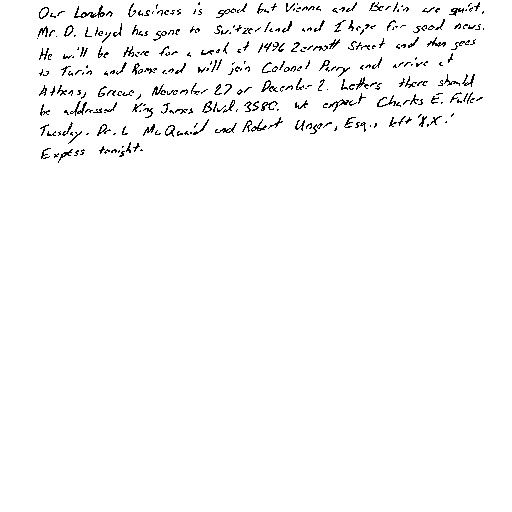 Our London business is good but Vienna and Berlin are quiet.
Mr. D. Lloyd has gone to Switzerland and I hope for good news.
He will be there for a week at 1496 Zermott Street and then goes
to Turin and Rome and will join Colonel Parry and arrive at
Athens, Greece, November 27 or December 2. Letters there should
be addressed King James Blvd. 3580. We expect Charles E. Fuller
Tuesday. Dr. L McQuaid and Robert Unger, Esq., left 'X.X.'
Express tonight.